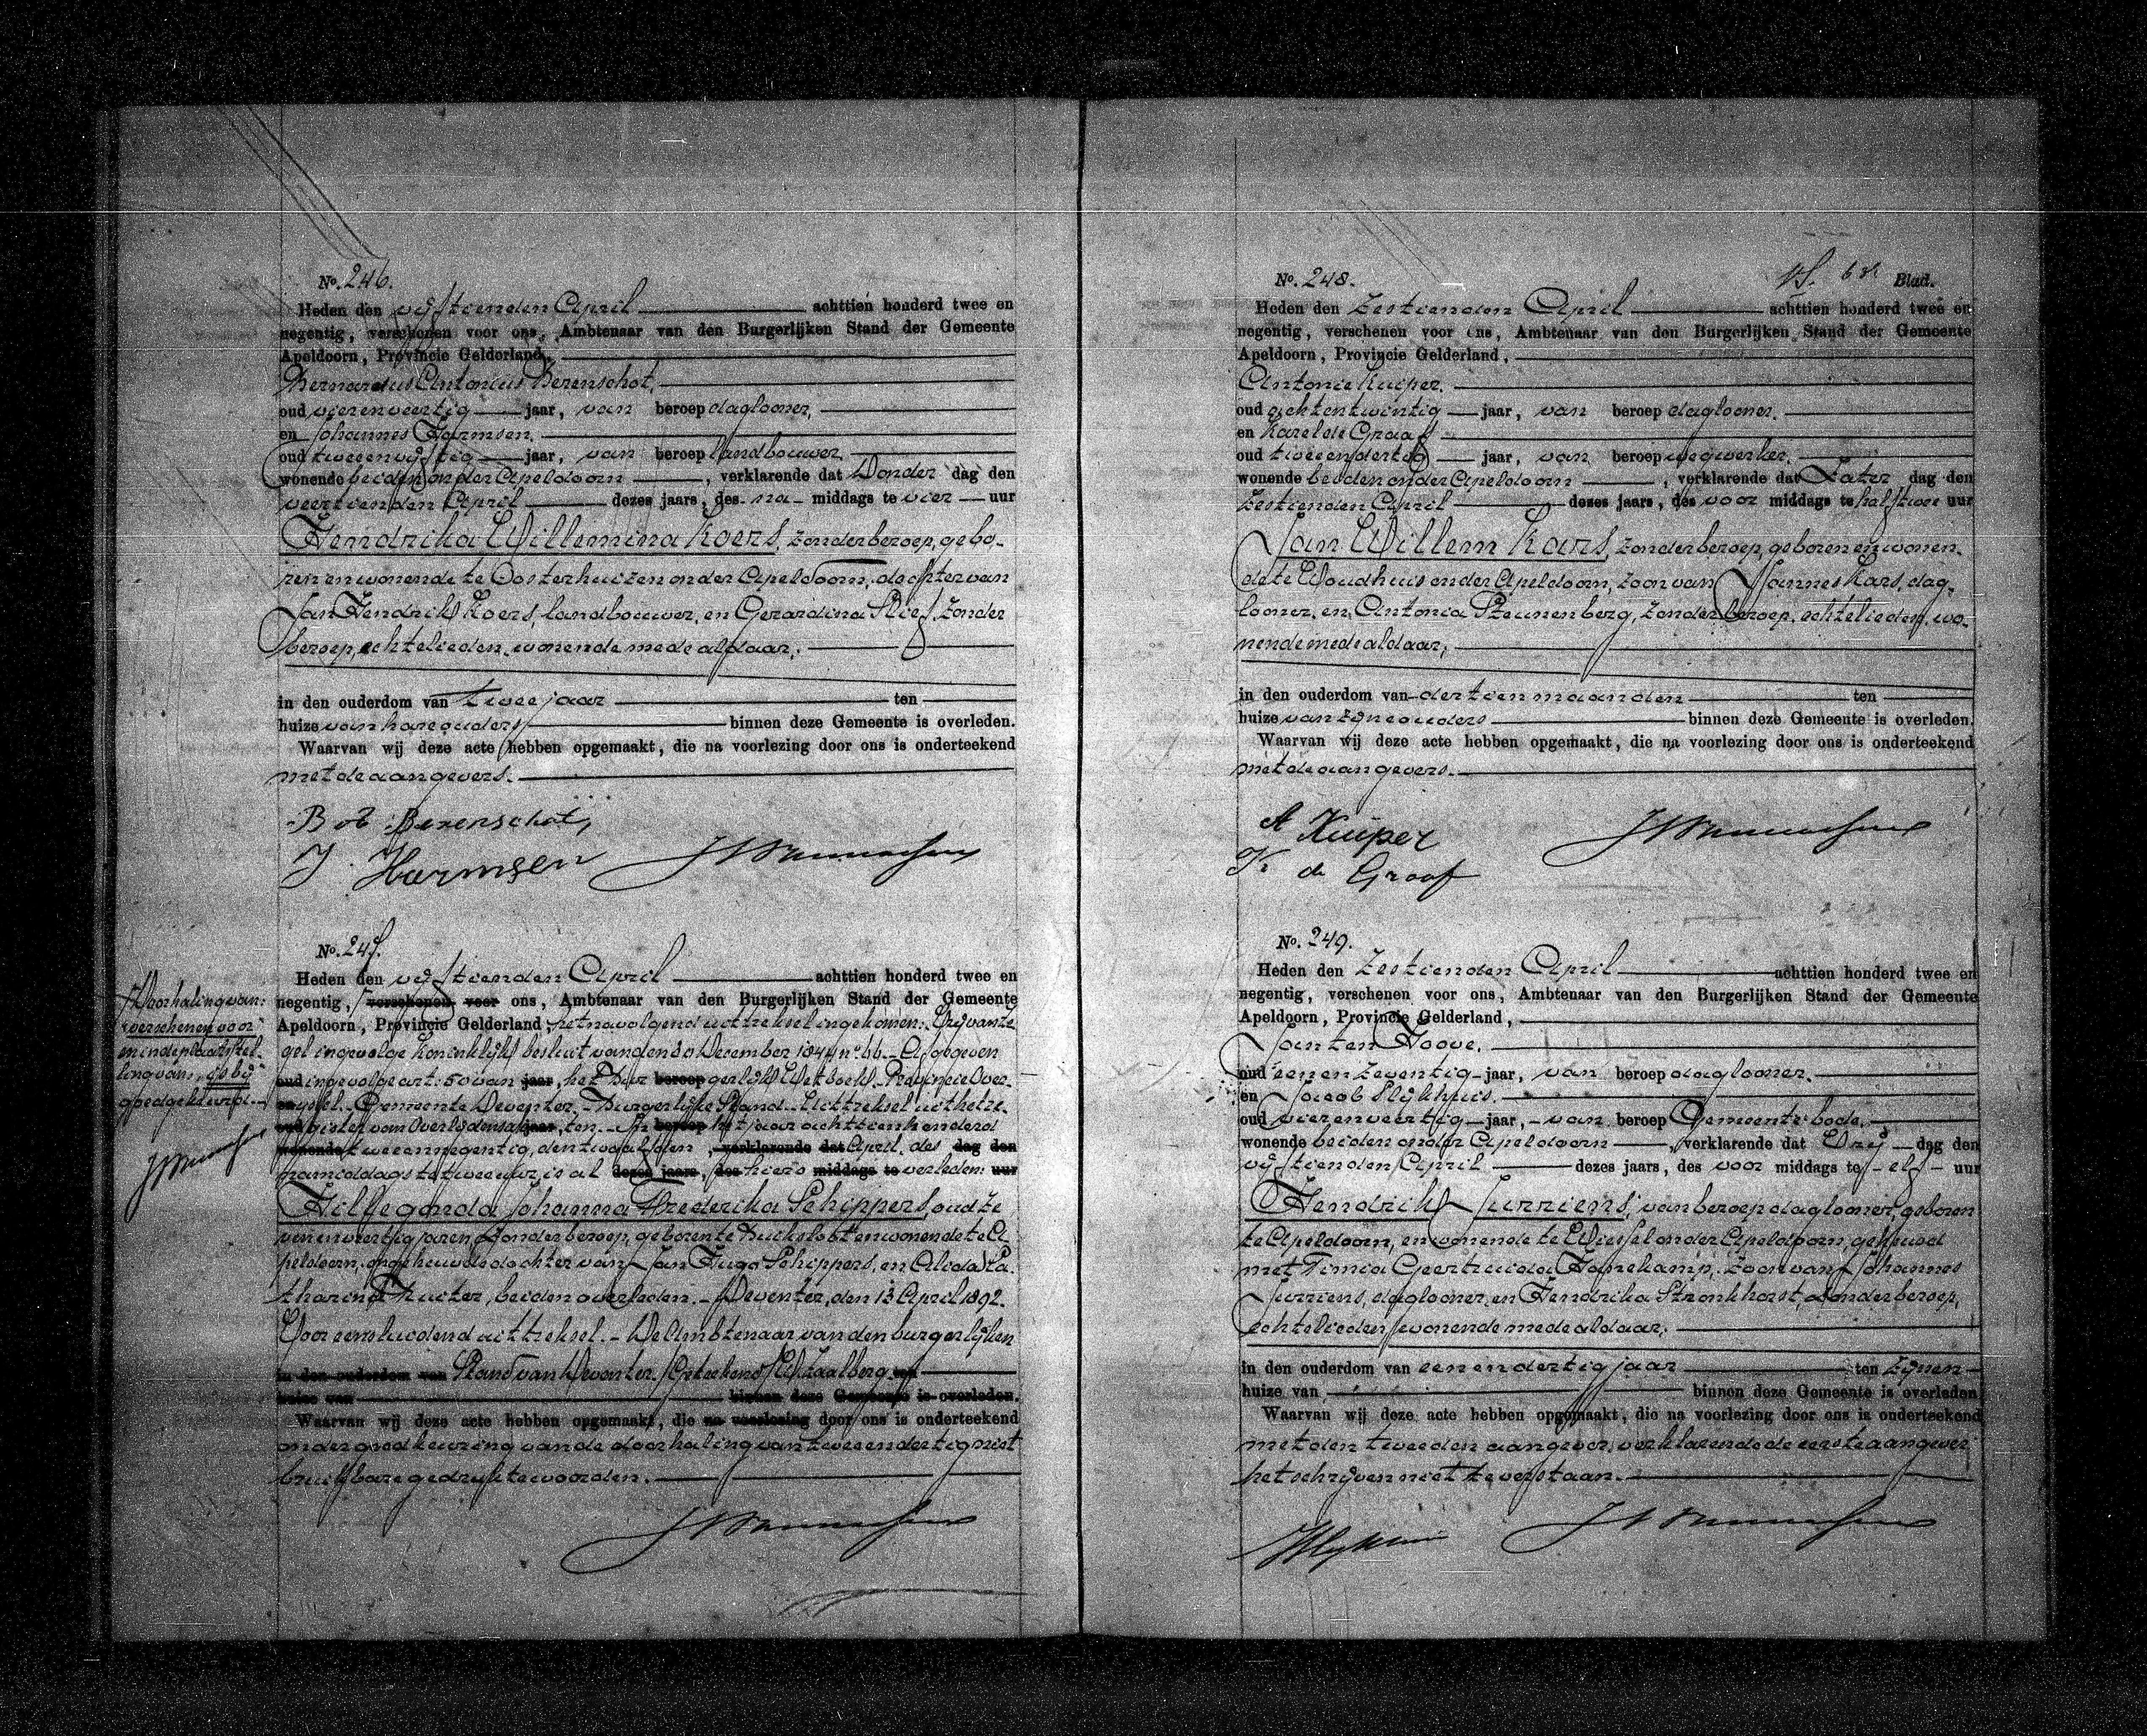 No. 246.
Heden den vijftienden April achttien honderd twee en
negentig, verschenen voor ons, Ambtenaar van den Burgerlijken Stand der Gemeente
Apeldoorn, Provincie Gelderland,
Bernardus Antonius Berenschot,
oud vierenveertig jaar, van beroep daglooner,
en Johannes Harmsen,
oud tweeenvijftig jaar, van beroep landbouwer,
wonende beiden onder Apeldoorn, verklarende dat Donder dag den
veertienden April dezes jaars, des na middags te vier uur
Hendrika Willemina Koers, zonder beroep, gebo-
ren en wonende te Oosterhuizen onder Apeldoorn, dochter van
Jan Hendrik Koers, landbouwer, en Gerardina Slief, zonder
beroep, echtelieden, wonende mede aldaar,
in den ouderdom van twee jaar ten
huize van hare ouders binnen deze Gemeente is overleden.
Waarvan wij deze acte hebben opgemaakt, die na voorlezing door ons is onderteekend
met de aangevers.
Berenschot,
J. Harmsen
No. 247.
Heden den vijftienden April achttien honderd twee en
negentig, verschenen voor ons, Ambtenaar van den Burgerlijken Stand der Gemeente
Apeldoorn, Provincie Gelderland het navolgend uittreksel ingekomen: Vrij van ze-
gel ingevolge Koninklijk besluit van den 30 December 1844 no. 66. Afgegeven
oud ingevolge art: 50 van jaar, het Bur beroep gerlijk Wetboek. Provincie Over-
en ijssel. Gemeente Deventer. Burgerlijke Stand. Uittreksel uit het re-
oud gister van Overlijdensak jaar, ten. In beroep het jaar achttienhonderd
wonende tweeennegentig, den twaalfden, verklarende dat April, des dag den
namiddags te twee uur, is al dezes jaars, des hier o middags te verleden: uur
Hillegonda Johanna Frederika Schippers, oud ze-
venenveertig jaren, zonder beroep, geboren te Buiksloot en wonende te A-
peldoorn, ongehuwde dochter van Jan Hugo Schippers, en Alida Ca-
tharina Fruiter, beiden overleden. Deventer, den 13 April 1892.
Voor eensluidend uittreksel. De Ambtenaar van den burgerlijken
in den ouderdom van Stand van Deventer. (Geteekend) Zaalberg. ten
huize van binnen deze Gemeente is overleden.
Waarvan wij deze acte hebben opgemaakt, die na voorlezing door ons is onderteekend
onder goedkeuring van de doorhaling van tweeendertig niet
bruikbare gedrukte woorden.
Doorhaling van:
"verschenen voor"
en indeplaatsstel-
ling van: "is bij"
goedgekeurd.
No. 248. 63e Blad.
Heden den zestienden April achttien honderd twee en
negentig, verschenen voor ons, Ambtenaar van den Burgerlijken Stand der Gemeente
Apeldoorn, Provincie Gelderland,
Antonie Kuiper,
oud achtentwintig jaar, van beroep daglooner,
en Karel de Graaf
oud tweeendertig jaar, van beroep wegwerker,
wonende beiden onder Apeldoorn, verklarende dat Zater dag den
zestienden April dezes jaars, des voor middags te half twee uur
Jan Willem Kars, zonder beroep, geboren en wonen-
de te Woudhuis onder Apeldoorn, zoon van Jannes Kars, dag-
looner, en Antonia Steunenberg, zonder beroep, echtelieden, wo-
nende mede aldaar,
in den ouderdom van dertien maanden ten
huize van zijne ouders binnen deze Gemeente is overleden.
Waarvan wij deze acte hebben opgemaakt, die na voorlezing door ons is onderteekend
met de aangevers.
A Kuiper
K de Graaf
No. 249.
Heden den zestienden April achttien honderd twee en
negentig, verschenen voor ons, Ambtenaar van den Burgerlijken Stand der Gemeente
Apeldoorn, Provincie Gelderland,
Jan ten Hoove,
oud eenenzeventig jaar, van beroep daglooner,
en Jacob Slijkhuis,
oud vierenveertig jaar, van beroep Gemeentebode,
wonende beiden onder Apeldoorn, verklarende dat Vrij dag den
vijftienden April dezes jaars, des voor middags te elf uur
Hendrik Jurriens, van beroep daglooner, geboren
te Apeldoorn, en wonende te Wiessel onder Apeldoorn, gehuwd
met Timia Geertruida Hanekamp, zoon van Johannes
Jurriens, daglooner, en Hendrika Stronkhorst, zonder beroep,
echtelieden, wonende mede aldaar,
in den ouderdom van eenendertig jaar ten zijnen
huize van binnen deze Gemeente is overleden
Waarvan wij deze acte hebben opgemaakt, die na voorlezing door ons is onderteekend
met den tweeden aangever, verklarende de eerste aangever
het schrijven niet te verstaan.